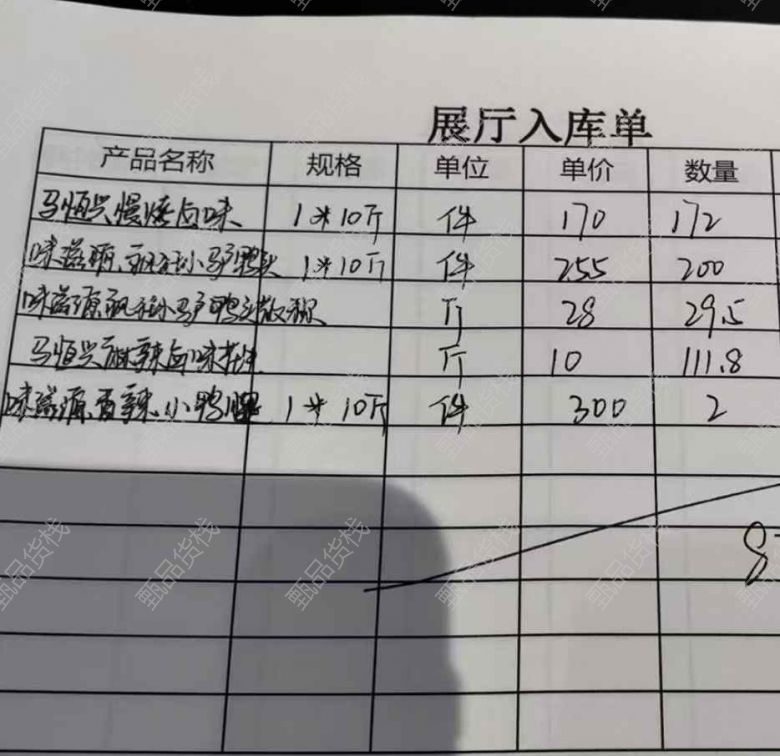 展厅入库单
产品名称 规格 单位 单价 数量
马恒兴慢烤卤味 1*10斤 件 170 172
味滋源 小 鸭头 1*10斤 件 255 200
味滋源 小 鸭 散称 斤 28 29.5
马恒兴 辣卤味 斤 10 111.8
味滋源香辣小鸭腿 1*10斤 件 300 2
8
甄品货栈